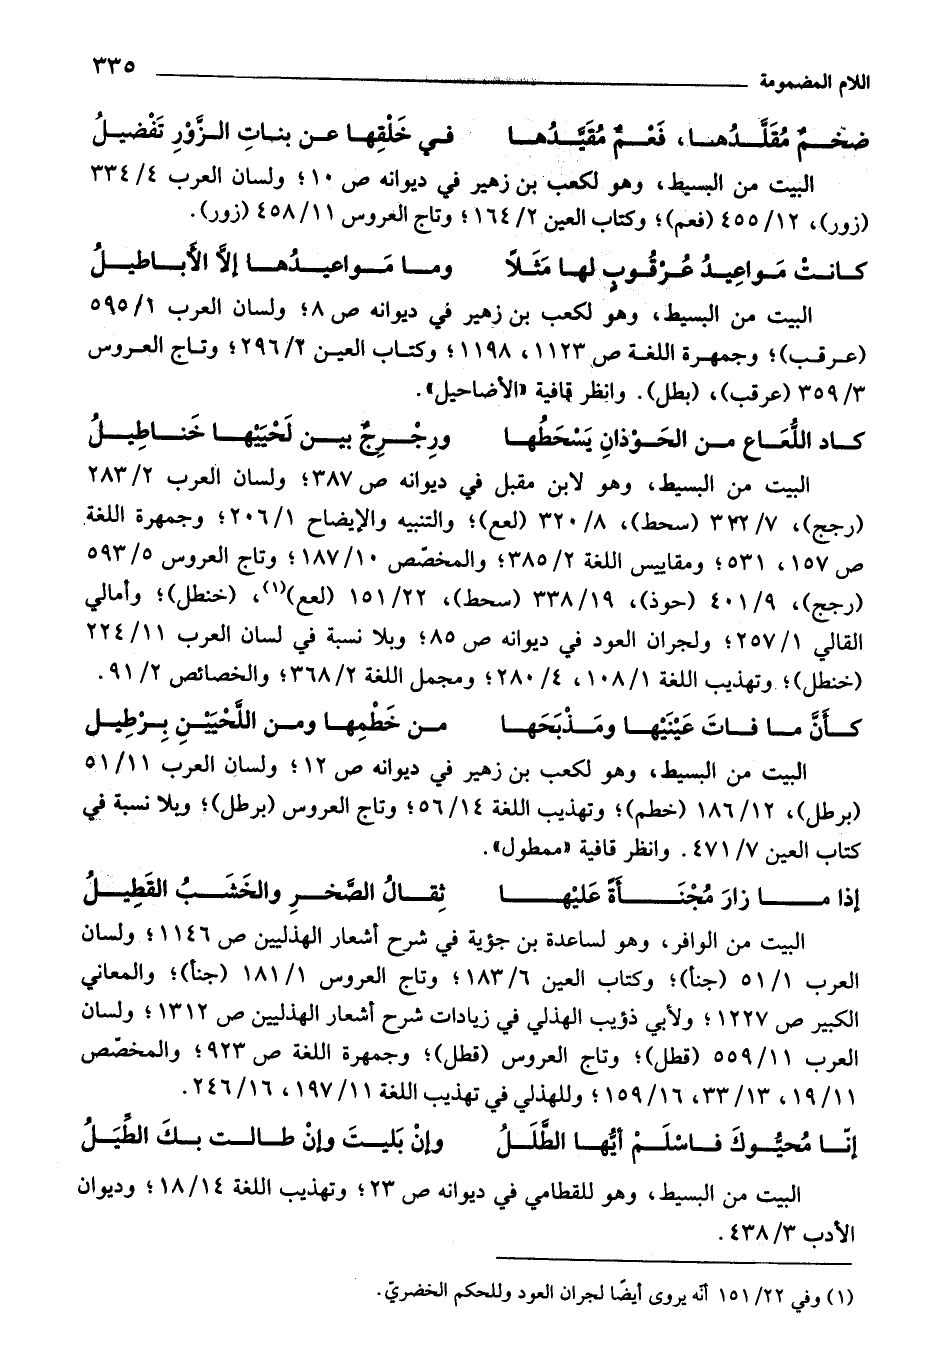 اللام المضمومة ٣٣٥
ضخمٌ مُقَلَّدُها، فَعْمٌ مُقَيَّدُها في خَلْقِها عن بناتِ الزَّوْرِ تَفْضيلُ
البيت من البسيط، وهو لكعب بن زهير في ديوانه ص ١٠؛ ولسان العرب ٤/ ٣٣٤
(زور)، ١٢/ ٤٥٥ (فعم)؛ وكتاب العين ٢/ ١٦٤؛ وتاج العروس ١١/ ٤٥٨ (زور).
كانتْ مَواعِيدُ عُرْقُوبٍ لها مَثَلاً وما مَواعيدُها إلاَّ الأَباطيلُ
البيت من البسيط، وهو لكعب بن زهير في ديوانه ص ٨؛ ولسان العرب ١/ ٥٩٥
(عرقب)؛ وجمهرة اللغة ص ١١٢٣، ١١٩٨؛ وكتاب العين ٢/ ٢٩٦؛ وتاج العروس
٣/ ٣٥٩ (عرقب)، (بطل). وانظر قافية «الأضاحيل».
كاد اللُّعَاع من الحَوْذانِ يَسْحَطُها ورِجْرِجٌ بين لَحْيَيْها خَناطِيلُ
البيت من البسيط، وهو لابن مقبل في ديوانه ص ٣٨٧؛ ولسان العرب ٢/ ٢٨٣
(رجج)، ٧/ ٣٢٢ (سحط)، ٨/ ٣٢٠ (لعع)؛ والتنبيه والإيضاح ١/ ٢٠٦؛ وجمهرة اللغة
ص ١٥٧، ٥٣١؛ ومقاييس اللغة ٢/ ٣٨٥؛ والمخصّص ١٠/ ١٨٧؛ وتاج العروس ٥/ ٥٩٣
(رجج)، ٩/ ٤٠١ (حوذ)، ١٩/ ٣٣٨ (سحط)، ٢٢/ ١٥١ (لعع)(١)، (خنطل)؛ وأمالي
القالي ١/ ٢٥٧؛ ولجران العود في ديوانه ص ٨٥؛ وبلا نسبة في لسان العرب ١١/ ٢٢٤
(خنطل)؛ وتهذيب اللغة ١/ ١٠٨، ٤/ ٢٨٠؛ ومجمل اللغة ٢/ ٣٦٨؛ والخصائص ٢/ ٩١.
كأنَّ ما فاتَ عَيْنَيْها ومَذْبَحَها من خَطْمِها ومن اللَّحْيَيْنِ بِرْطِيل
البيت من البسيط، وهو لكعب بن زهير في ديوانه ص ١٢؛ ولسان العرب ١١/ ٥١
(برطل)، ١٢/ ١٨٦ (خطم)؛ وتهذيب اللغة ١٤/ ٥٦؛ وتاج العروس (برطل)؛ وبلا نسبة في
كتاب العين ٧/ ٤٧١. وانظر قافية «ممطول».
إذا ما زارَ مُجْنَأَةً عَلَيْها ثِقالُ الصَّخرِ والخَشَبُ القَطِيلُ
البيت من الوافر، وهو لساعدة بن جؤية في شرح أشعار الهذليين ص ١١٤٦؛ ولسان
العرب ١/ ٥١ (جنأ)؛ وكتاب العين ٦/ ١٨٣؛ وتاج العروس ١/ ١٨١ (جنأ)؛ والمعاني
الكبير ص ١٢٢٧؛ ولأبي ذؤيب الهذلي في زيادات شرح أشعار الهذليين ص ١٣١٢؛ ولسان
العرب ١١/ ٥٥٩ (قطل)؛ وتاج العروس (قطل)؛ وجمهرة اللغة ص ٩٢٣؛ والمخصّص
١١/ ١٩، ١٣/ ٣٣، ١٦/ ١٥٩؛ وللهذلي في تهذيب اللغة ١١/ ١٩٧، ١٦/ ٢٤٦.
إنّا مُحيُّوكَ فاسْلَمْ أيُّها الطَّلَلُ وإنْ بَليتَ وإنْ طالت بكَ الطِّيَلُ
البيت من البسيط، وهو للقطامي في ديوانه ص ٢٣؛ وتهذيب اللغة ١٤/ ١٨؛ وديوان
الأدب ٣/ ٤٣٨.
(١) وفي ٢٢/ ١٥١ أنّه يروى أيضًا لجران العود وللحكم الخضريّ.